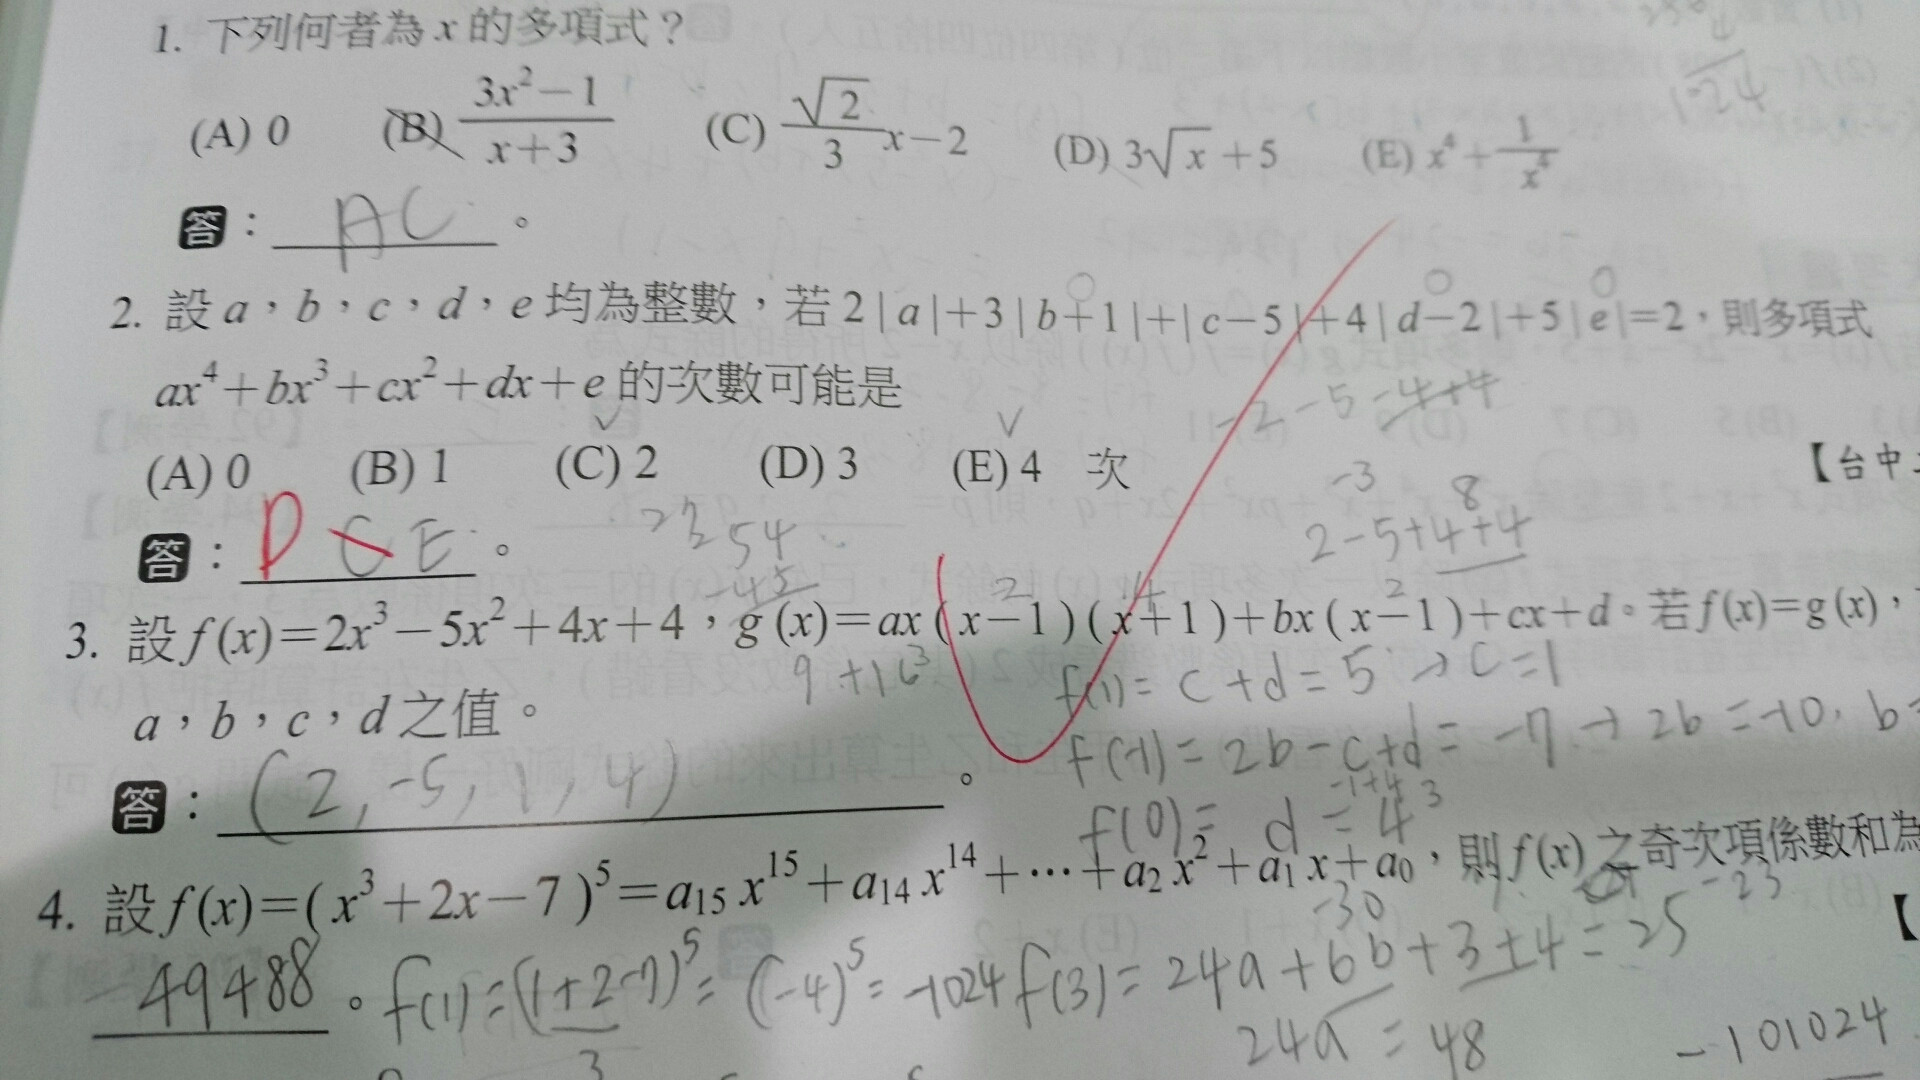 1. 下列何者為 x 的多項式？
(A) 0 (B) \frac{3x^2-1}{x+3} (C) \frac{\sqrt{2}}{3}x-2 (D) 3\sqrt{x}+5 (E) x^4+\frac{1}{x^4}
答：AC。
2. 設 a，b，c，d，e 均為整數，若 2|a|+3|b+1|+|c-5|+4|d-2|+5|e|=2，則多項式
ax^4+bx^3+cx^2+dx+e 的次數可能是
-2-5-4+4
(A) 0 (B) 1 (C) 2 (D) 3 (E) 4 次
【台中
答：D C E。
-3 8
2-5+4+4
3. 設 f(x)=2x^3-5x^2+4x+4，g(x)=ax(x-1)(x+1)+bx(x-1)+cx+d。若 f(x)=g(x)，
f(1)=c+d=5→c=1
a，b，c，d 之值。
f(-1)=2b-c+d=-7→2b=-10, b=
-1+4 3
答：(2, -5, 1, 4)。
f(0)=d=4
4. 設 f(x)=(x^3+2x-7)^5=a_{15}x^{15}+a_{14}x^{14}+⋯+a_2x^2+a_1x+a_0，則 f(x) 之奇次項係數和為
-30 -23
49488。f(1)=(1+2-7)^5=(-4)^5=-1024
f(3)=24a+6b+3+4=25
3
24a=48
-101024